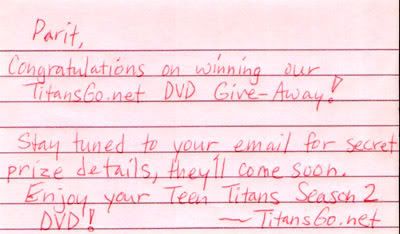 Parit,
Congratulations on winning our
TitansGo.net DVD Give-Away!
Stay tuned to your email for secret
prize details, they'll come soon.
Enjoy your Teen Titans Season 2
DVD!!
— TitansGo.net